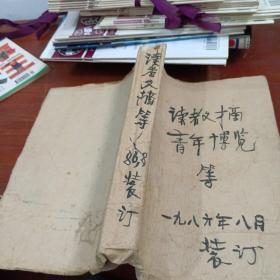 读者文摘等
装订
读者文摘
青年博览
等
一九八六年八月
装订